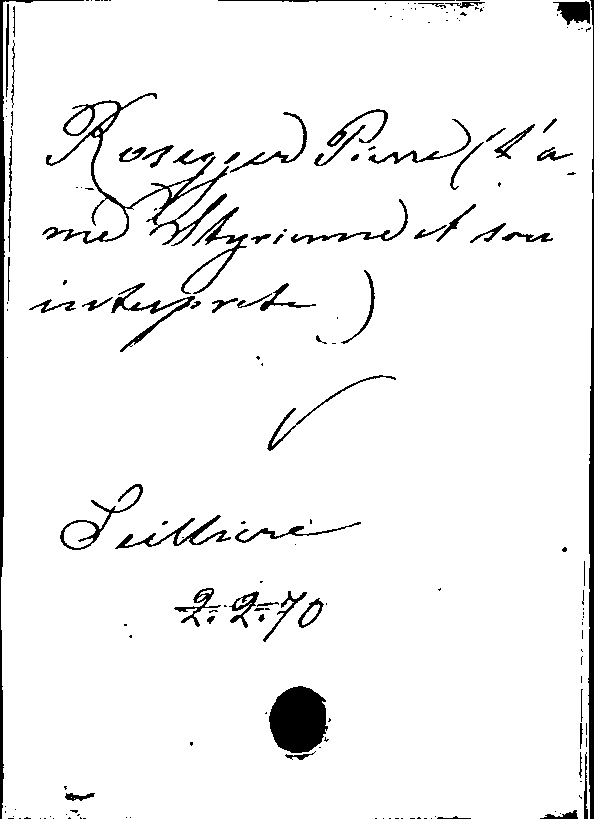 Rosegger Pierre (L'a-
me Styrienne et son
interprete)
Seilliere
2.2.70